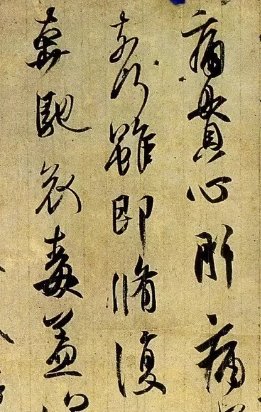 痛貫心肝痛
奈何雖即脩復
奔馳哀毒益